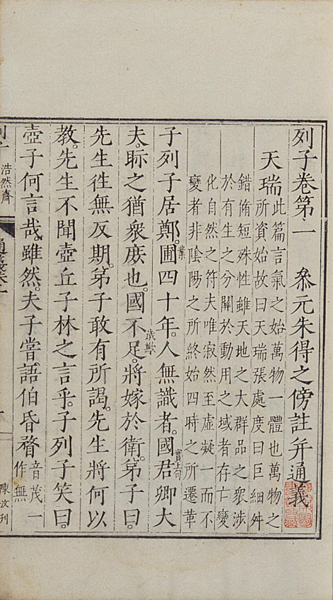 列子卷第一 叅元朱得之傍註并通義
天瑞此篇言氣之始萬物一體也萬物之
所資始故曰天瑞張處度曰巨細舛
錯脩短殊性雖天地之大群品之衆涉
於有生之分關於動用之域者存亡變
化自然之符夫唯寂然至虛凝一而不
變者非陰陽之所終始四時之所遷革
子列子居鄭圃四十年人無識者國君卿大
夫眎之猶衆庶也國不足將嫁於衛弟子曰
先生徃無反期弟子敢有所謁先生將何以
教先生不聞壺丘子林之言乎子列子笑曰
壺子何言哉雖然夫子嘗語伯昏瞀音茂一作無
浩然齋